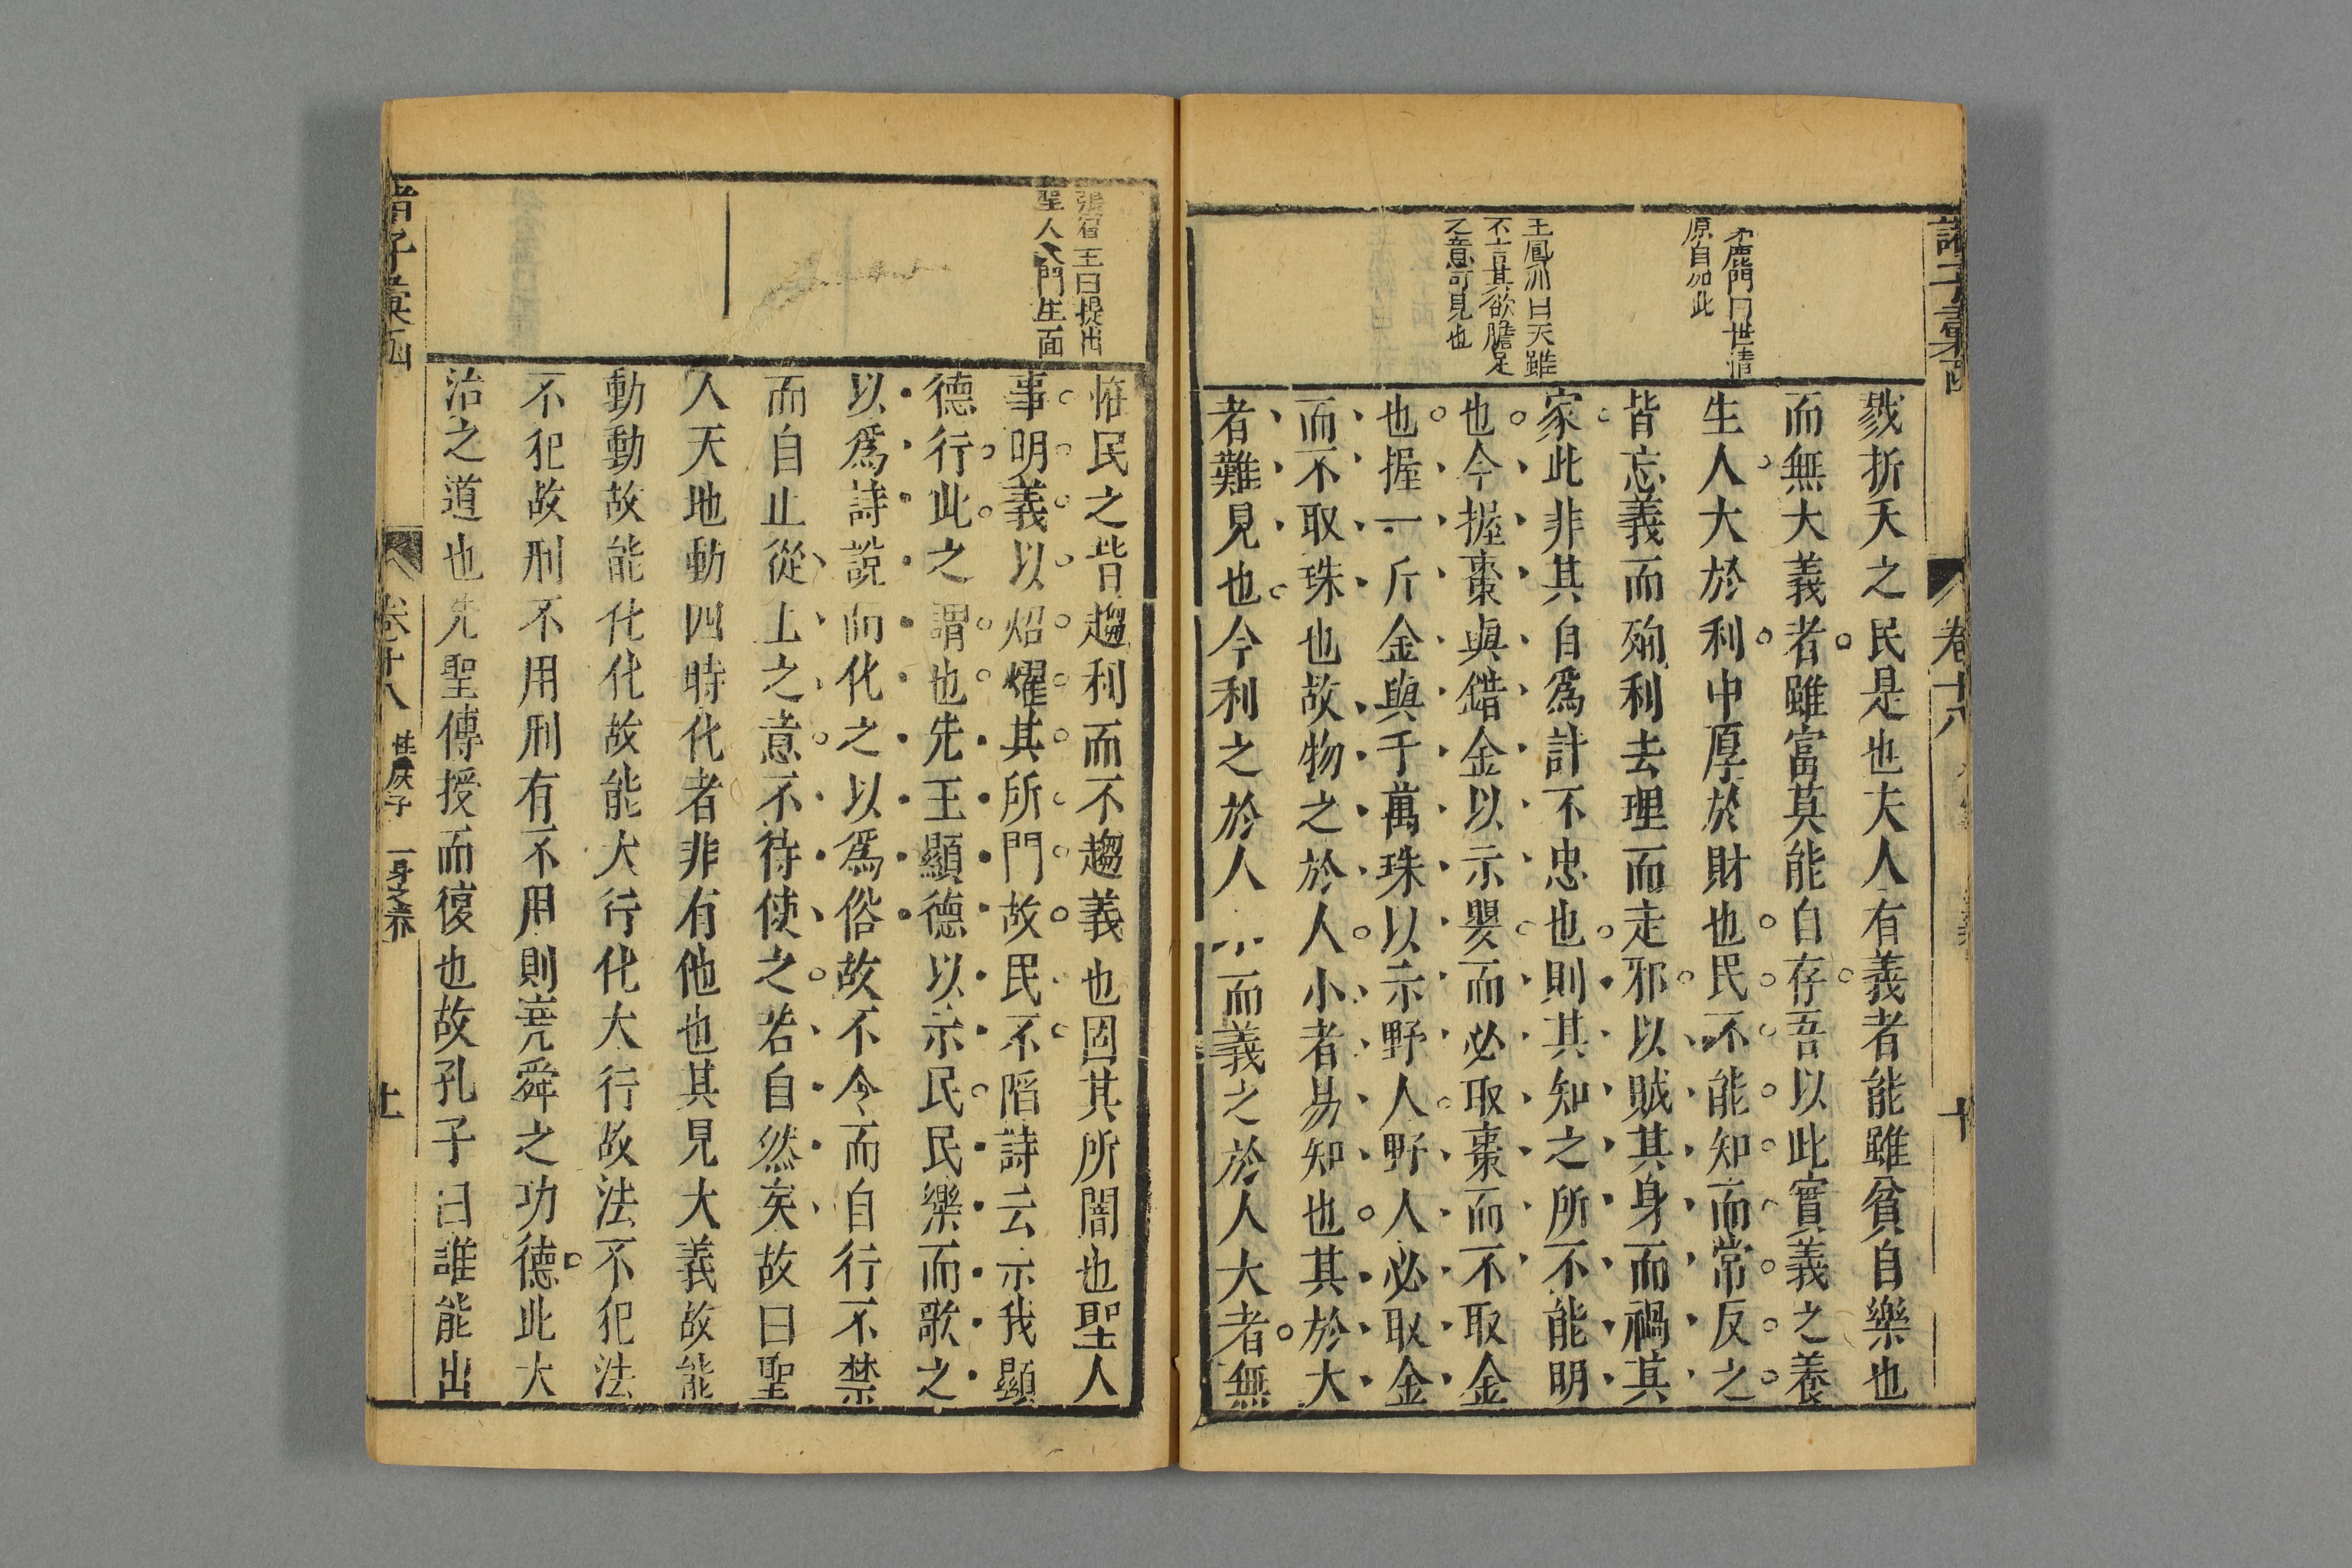 茅鹿門曰世情
原自如此
王鳳洲曰天雖
不言其欲贍足
之意可見也
戮折夭之民是也夫人有義者能雖貧自樂也
而無大義者雖富莫能自存吾以此實義之養
生人大於利中厚於財也民不能知而常反之
皆忘義而殉利去理而走邪以賊其身而禍其
家此非其自爲計不忠也則其知之所不能明
也今握棗與錯金以示嬰而必取棗而不取金
也握一斤金與千萬珠以示野人野人必取金
而不取珠也故物之於人小者易知也其於大
者難見也今利之於人小而義之於人大者無
張賓王曰提出
聖人入門生面
恠民之皆趨利而不趨義也固其所闇也聖人
事明義以炤燿其所門故民不陷詩云示我顯
德行此之謂也先王顯德以示民民樂而歌之
以爲詩說而化之以爲俗故不令而自行不禁
而自止從上之意不待使之若自然矣故曰聖
人天地動四時化者非有他也其見大義故能
動動故能化化故能大行化大行故法不犯法
不犯故刑不用刑有不用則堯舜之功德此大
治之道也先聖傳授而復也故孔子曰誰能出
諸子彙函
卷十八
一身之養